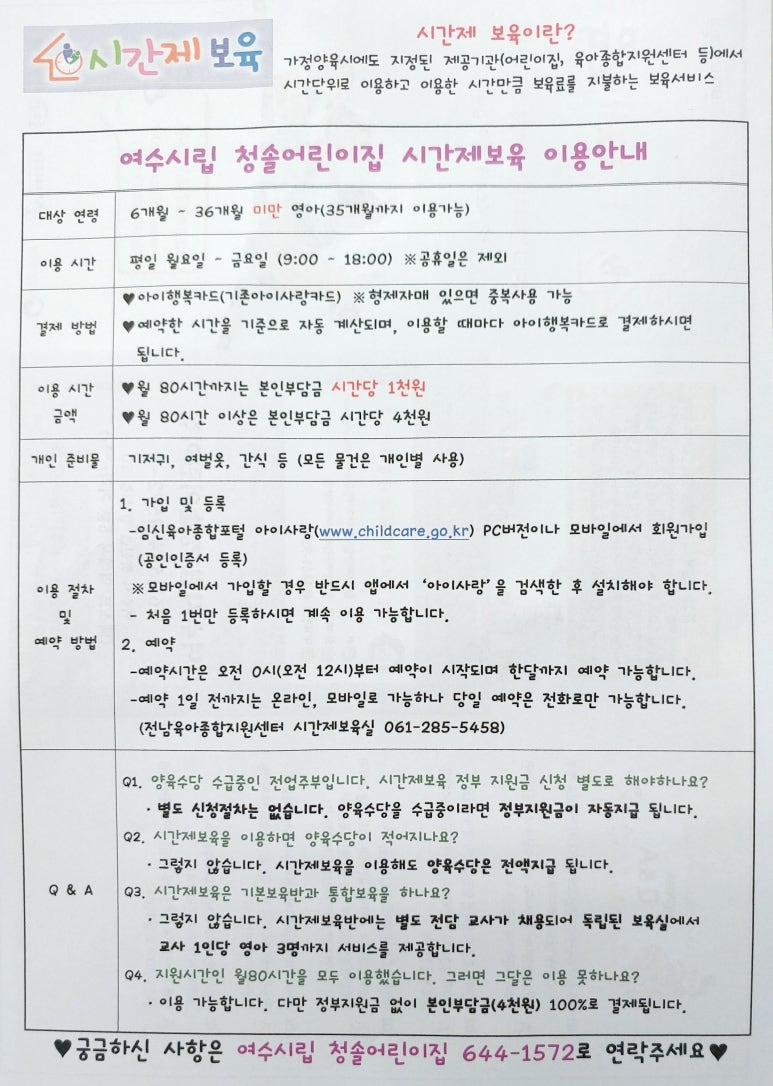 시간제 보육
시간제 보육이란?
가정양육시에도 지정된 제공기관(어린이집, 육아종합지원센터 등)에서
시간단위로 이용하고 이용한 시간만큼 보육료를 지불하는 보육서비스
여수시립 청솔어린이집 시간제보육 이용안내
대상 연령
6개월 ~ 36개월 미만 영아(35개월까지 이용가능)
이용 시간
평일 월요일 ~ 금요일 (9:00 ~ 18:00) ※공휴일은 제외
결제 방법
♥아이행복카드(기존아이사랑카드) ※형제자매 있으면 중복사용 가능
♥예약한 시간을 기준으로 자동 계산되며, 이용할 때마다 아이행복카드로 결제하시면
됩니다.
이용 시간
금액
♥월 80시간까지는 본인부담금 시간당 1천원
♥월 80시간 이상은 본인부담금 시간당 4천원
개인 준비물
기저귀, 여벌옷, 간식 등 (모든 물건은 개인별 사용)
이용 절차
및
예약 방법
1. 가입 및 등록
-임신육아종합포털 아이사랑(www.childcare.go.kr) PC버전이나 모바일에서 회원가입
(공인인증서 등록)
※모바일에서 가입할 경우 반드시 앱에서 ‘아이사랑’을 검색한 후 설치해야 합니다.
- 처음 1번만 등록하시면 계속 이용 가능합니다.
2. 예약
-예약시간은 오전 0시(오전 12시)부터 예약이 시작되며 한달까지 예약 가능합니다.
-예약 1일 전까지는 온라인, 모바일로 가능하나 당일 예약은 전화로만 가능합니다.
(전남육아종합지원센터 시간제보육실 061-285-5458)
Q & A
Q1. 양육수당 수급중인 전업주부입니다. 시간제보육 정부 지원금 신청 별도로 해야하나요?
· 별도 신청절차는 없습니다. 양육수당을 수급중이라면 정부지원금이 자동지급 됩니다.
Q2. 시간제보육을 이용하면 양육수당이 적어지나요?
· 그렇지 않습니다. 시간제보육을 이용해도 양육수당은 전액지급 됩니다.
Q3. 시간제보육은 기본보육반과 통합보육을 하나요?
· 그렇지 않습니다. 시간제보육반에는 별도 전담 교사가 채용되어 독립된 보육실에서
교사 1인당 영아 3명까지 서비스를 제공합니다.
Q4. 지원시간인 월80시간을 모두 이용했습니다. 그러면 그달은 이용 못하나요?
· 이용 가능합니다. 다만 정부지원금 없이 본인부담금(4천원) 100%로 결제됩니다.
♥궁금하신 사항은 여수시립 청솔어린이집 644-1572로 연락주세요♥